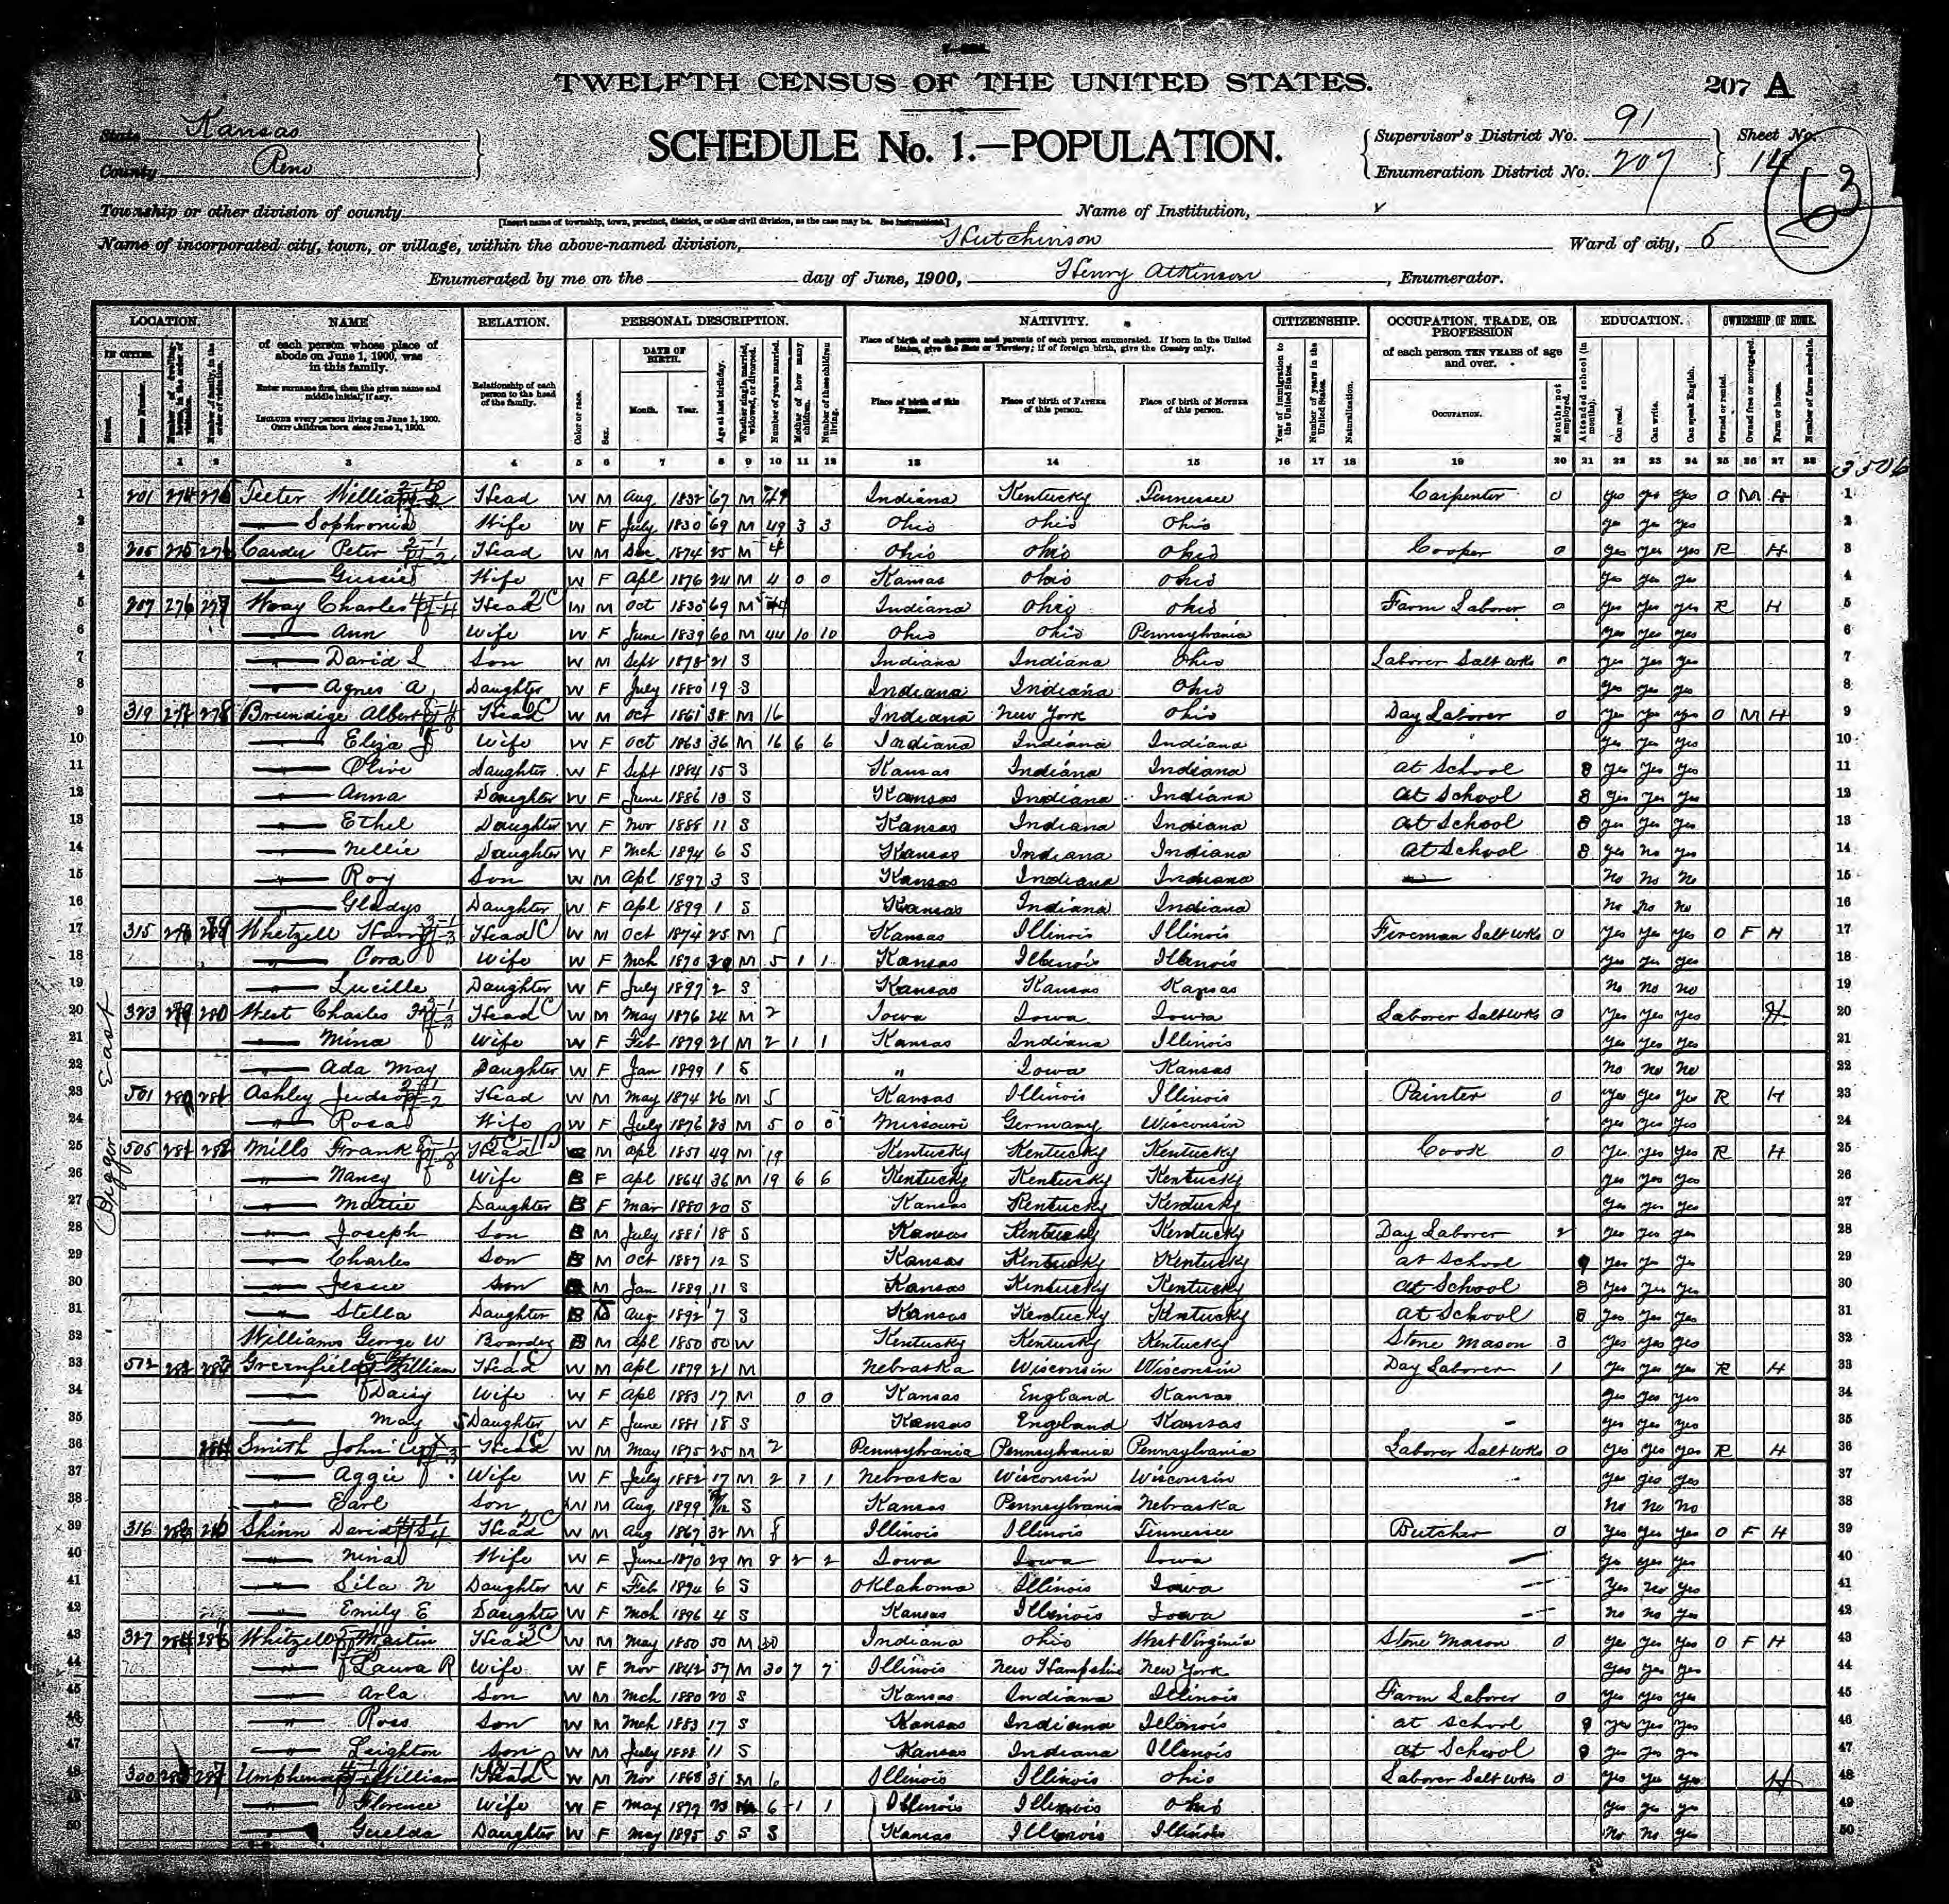 TWELFTH CENSUS OF THE UNITED STATES.
207 A
State Kansas
County Reno
SCHEDULE No. 1.—POPULATION.
Supervisor's District No. 91
Enumeration District No. 207
Sheet No.
14
63
Township or other division of county
[Insert name of township, town, precinct, district, or other civil division, as the case may be. See instructions.]
Name of Institution,
Name of incorporated city, town, or village, within the above-named division, Hutchinson
Ward of city, 5
Enumerated by me on the day of June, 1900, Henry Atkinson, Enumerator.
LOCATION. NAME RELATION. PERSONAL DESCRIPTION. NATIVITY. CITIZENSHIP. OCCUPATION, TRADE, OR PROFESSION EDUCATION. OWNERSHIP OF HOME.
IN CITIES. of each person whose place of abode on June 1, 1900, was in this family.
Enter surname first, then the given name and middle initial, if any.
INCLUDE every person living on June 1, 1900. OMIT children born since June 1, 1900.
Relationship of each person to the head of the family.
DATE OF BIRTH. Month. Year.
Place of birth of each person and parents of each person enumerated. If born in the United States, give the State or Territory; if of foreign birth, give the Country only.
Place of birth of this PERSON. Place of birth of FATHER of this person. Place of birth of MOTHER of this person.
of each person TEN YEARS of age and over.
OCCUPATION.
1 2 3 4 5 6 7 8 9 10 11 12 13 14 15 16 17 18 19 20 21 22 23 24 25 26 27 28
1 201 274 Teeter William Head W M Aug 1832 67 M 49 Indiana Kentucky Tennessee Carpenter 0 yes yes yes O M H 1
2 Sophronia Wife W F July 1830 69 M 49 3 3 Ohio Ohio Ohio yes yes yes 2
3 205 275 276 Peter Head W M Dec 1874 25 M 4 Ohio Ohio Ohio Cooper 0 yes yes yes R H 3
4 Gussie Wife W F Apl 1876 24 M 4 0 0 Kansas Ohio Ohio yes yes yes 4
5 207 276 277 Wray Charles Head W M Oct 1830 69 M 44 Indiana Ohio Ohio Farm Laborer 0 yes yes yes R H 5
6 Ann Wife W F June 1839 60 M 44 10 10 Ohio Ohio Pennsylvania yes yes yes 6
7 David L Son W M Sept 1878 21 S Indiana Indiana Ohio Laborer Salt Wks yes yes yes 7
8 Agnes A Daughter W F July 1880 19 S Indiana Indiana Ohio yes yes yes 8
9 319 277 278 Brundige Albert Head W M Oct 1861 38 M 16 Indiana New York Ohio Day Laborer 0 yes yes yes O M H 9
10 Eliza Wife W F Oct 1863 36 M 16 6 6 Indiana Indiana Indiana yes yes yes 10
11 Olive Daughter W F Sept 1884 15 S Kansas Indiana Indiana At School 8 yes yes yes 11
12 Anna Daughter W F June 1886 13 S Kansas Indiana Indiana At School 8 yes yes yes 12
13 Ethel Daughter W F Nov 1888 11 S Kansas Indiana Indiana At School 8 yes yes yes 13
14 Nellie Daughter W F Mch 1894 6 S Kansas Indiana Indiana At School 8 yes no yes 14
15 Roy Son W M Apl 1897 3 S Kansas Indiana Indiana no no no 15
16 Gladys Daughter W F Apl 1899 1 S Kansas Indiana Indiana no no no 16
17 315 278 279 Whetzell Harry Head W M Oct 1874 25 M 5 Kansas Illinois Illinois Fireman Salt Wks 0 yes yes yes O F H 17
18 Cora Wife W F Mch 1870 30 M 5 1 1 Kansas Illinois Illinois yes yes yes 18
19 Lucille Daughter W F July 1897 2 S Kansas Kansas Kansas no no no 19
20 323 279 280 West Charles Head W M May 1876 24 M 2 Iowa Iowa Iowa Laborer Salt Wks 0 yes yes yes H 20
21 Mina Wife W F Feb 1879 21 M 2 1 1 Kansas Indiana Illinois yes yes yes 21
22 Ada May Daughter W F Jan 1899 1 S " Iowa Kansas no no no 22
23 501 280 281 Ashley Judson Head W M May 1874 26 M 5 Kansas Illinois Illinois Painter 0 yes yes yes R H 23
24 Rosa Wife W F July 1876 23 M 5 0 0 Missouri Germany Wisconsin yes yes yes 24
25 505 281 282 Mills Frank Head M Apl 1851 49 M 19 Kentucky Kentucky Kentucky Cook 0 yes yes yes R H 25
26 Nancy Wife B F Apl 1864 36 M 19 6 6 Kentucky Kentucky Kentucky yes yes yes 26
27 Mattie Daughter B F Mar 1880 20 S Kansas Kentucky Kentucky yes yes yes 27
28 Joseph Son B M July 1881 18 S Kansas Kentucky Kentucky Day Laborer 2 yes yes yes 28
29 Charles Son B M Oct 1887 12 S Kansas Kentucky Kentucky At School yes yes yes 29
30 Jessie Son M Jan 1889 11 S Kansas Kentucky Kentucky At School 8 yes yes yes 30
31 Stella Daughter B Aug 1892 7 S Kansas Kentucky Kentucky At School 8 yes yes yes 31
32 Williams George W Boarder B M Apl 1850 50 W Kentucky Kentucky Kentucky Stone Mason 3 yes yes yes 32
33 512 282 283 Greenfield William Head W M Apl 1879 21 M Nebraska Wisconsin Wisconsin Day Laborer 1 yes yes yes R H 33
34 Daisy Wife W F Apl 1883 17 M 0 0 Kansas England Kansas yes yes yes 34
35 May S Daughter W F June 1881 18 S Kansas England Kansas yes yes yes 35
36 284 Smith John Head W M May 1875 25 M 2 Pennsylvania Pennsylvania Pennsylvania Laborer Salt Wks 0 yes yes yes R H 36
37 Aggie Wife W F July 1882 17 M 2 1 1 Nebraska Wisconsin Wisconsin yes yes yes 37
38 Earl Son W M Aug 1899 S Kansas Pennsylvania Nebraska no no no 38
39 316 Shinn David Head W M Aug 1867 32 M 8 Illinois Illinois Tennessee Butcher 0 yes yes yes O F H 39
40 Nina Wife W F June 1870 29 M 8 2 2 Iowa Iowa Iowa yes yes yes 40
41 Lila N Daughter W F Feb 1894 6 S Oklahoma Illinois Iowa yes no yes 41
42 Emily E Daughter W F Mch 1896 4 S Kansas Illinois Iowa no no yes 42
43 327 284 286 Whitzell Martin Head W M May 1850 50 M 30 Indiana Ohio West Virginia Stone Mason 0 yes yes yes O F H 43
44 Laura R Wife W F Nov 1842 57 M 30 7 7 Illinois New Hampshire New York yes yes yes 44
45 Arla Son W M Mch 1880 20 S Kansas Indiana Illinois Farm Laborer 0 yes yes yes 45
46 Ross Son W M Mch 1883 17 S Kansas Indiana Illinois At School yes yes yes 46
47 Leighton Son W M July 1888 11 S Kansas Indiana Illinois At School yes yes yes 47
48 300 285 287 William Head W M Nov 1868 31 M 6 Illinois Illinois Ohio Laborer Salt Wks 0 yes yes yes H 48
49 Florence Wife W F May 6 1 1 Illinois Illinois Ohio yes yes yes 49
50 Daughter W F May 1895 5 S S Kansas Illinois Illinois no no yes 50
East